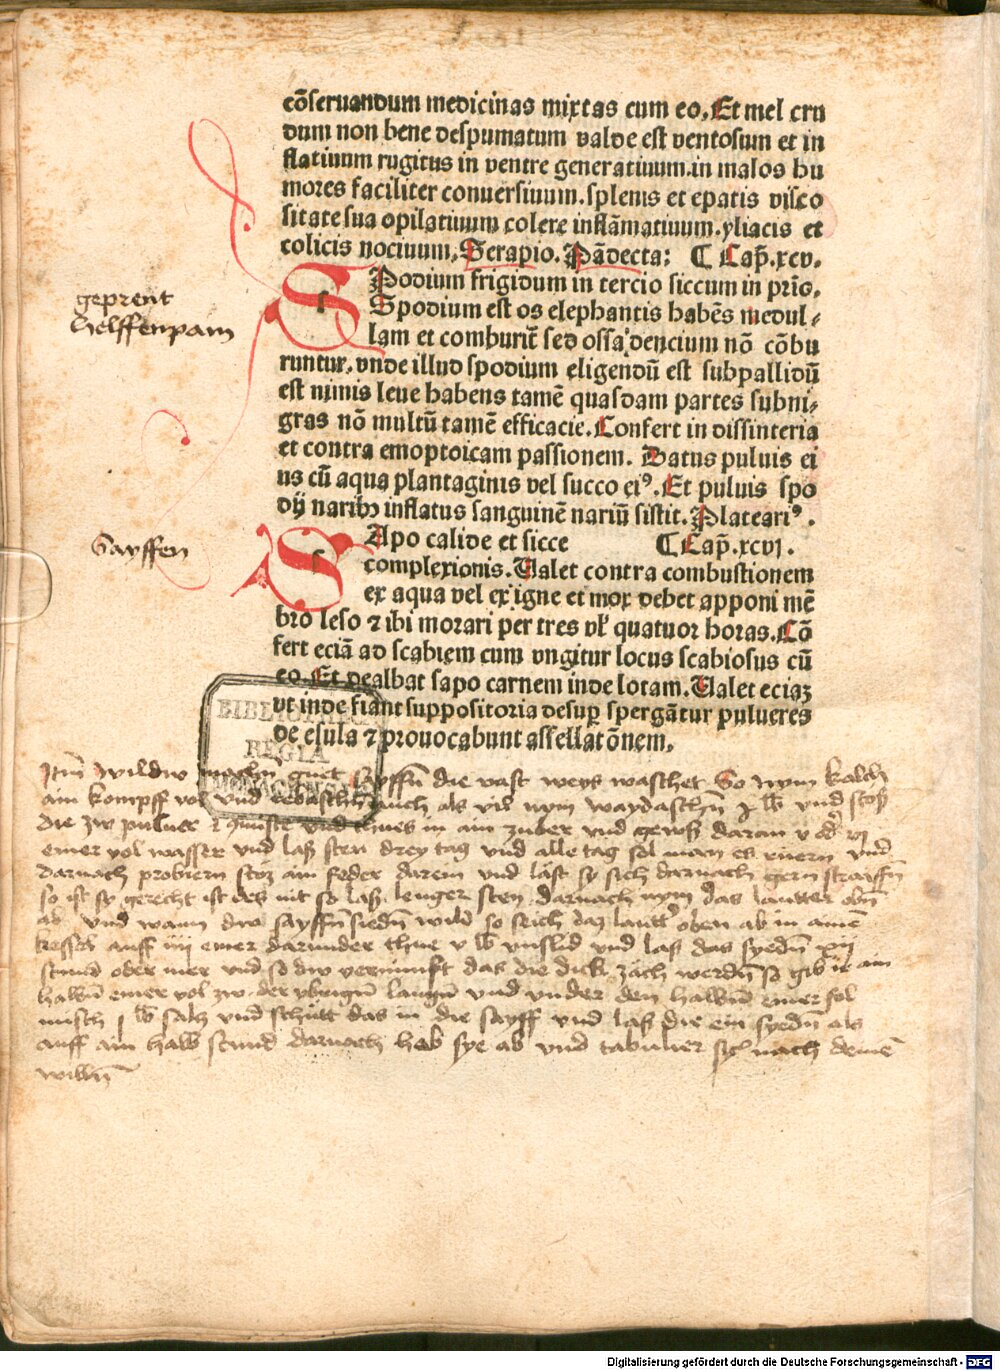 cōſeruandum medicinas mixtas cum eo. Et mel cru
dum non bene deſpumatum valde eſt ventoſum et in
flatiuum rugitus in ventre generatiuum. in malos hu
mores faciliter conuerſiuum. ſplenis et epatis viſco
ſitate ſua opilatiuum colere inflāmatiuum. yliacis et
colicis nociuum. Serapio. Pādecta: ¶ Cap̄. xcv.
geprent
helffenpain
SPodium frigidum in tercio ſiccum in prīo.
Spodium eſt os elephantis habēs medul⸗
lam et comburit̄ ſed oſſa dencium nō cōbu
runtur. vnde illud ſpodium eligendū eſt ſubpallidū
eſt nimis leue habens tamē quaſdam partes ſubni⸗
gras nō multū tamē efficacie. Confert in diſſinteria
et contra emoptoicam paſſionem. Datus puluis ei
us cū aqua plantaginis vel ſucco eiꝰ. Et puluis ſpo
dij naribꝫ inflatus ſanguinē nariū ſiſtit. Plateariꝰ.
Sayffen
SApo calide et ſicce ¶ Cap̄. xcvj.
complexionis. Ualet contra combuſtionem
ex aqua vel ex igne et mox debet apponi mē
bro leſo ⁊ ibi morari per tres vł quatuor horas. Cō
fert eciā ad ſcabiem cum vngitur locus ſcabioſus cū
eo. Et dealbat ſapo carnem inde lotam. Ualet eciaꝫ
vt inde fiant ſuppoſitoria deſup̱ ſpergātur pulueres
de eſula ⁊ prouocabunt aſſellatōnem.
BIBLIOTHECA
REGIA
MONACENSIS
Itm̄ wildw machn̄ guet sayffn̄ die vast weys waschet So nym kalch
ain kompff vol vnd als vil nym waydaschn̄ vnd stos
die zw puluer vnd thues in ain zuber vnd gews daran v od̄ vj
emer vol wasser vnd laß sten drey tag vnd alle tag sol man es ruern vnd
darnach probiern stoz ain feder darein vnd läst sy sich darnach gern straiffn̄
so ist sy gerecht ist des nit so laß lenger sten darnach nym das lautter obn̄
ab vnd wann dw sayffn̄ siedn̄ wild so seich daz lautt̄ oben ab in ainē
kessel auff iiii emer darunder thue v lb vnslid vnd laß das syedn̄ xii
stund oder mer vnd so dw vernimst das die dick zäch werdn̄ so gib ir ain
halbn̄ emer vol zw der vbrign̄ laugn̄ vnd vnder den halbn̄ emer sol
misch j lb salz vnd schütt das in die sayff vnd laß die ein syedn̄ als
auff ain halb stund darnach heb sye ab vnd nach deinē
willn̄
Digitalisierung gefördert durch die Deutsche Forschungsgemeinschaft - DFG